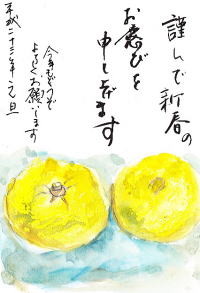 謹んで新春の
お慶びを
申し上げます
今年もどうぞ
よろしくお願いします
平成二十三年元旦